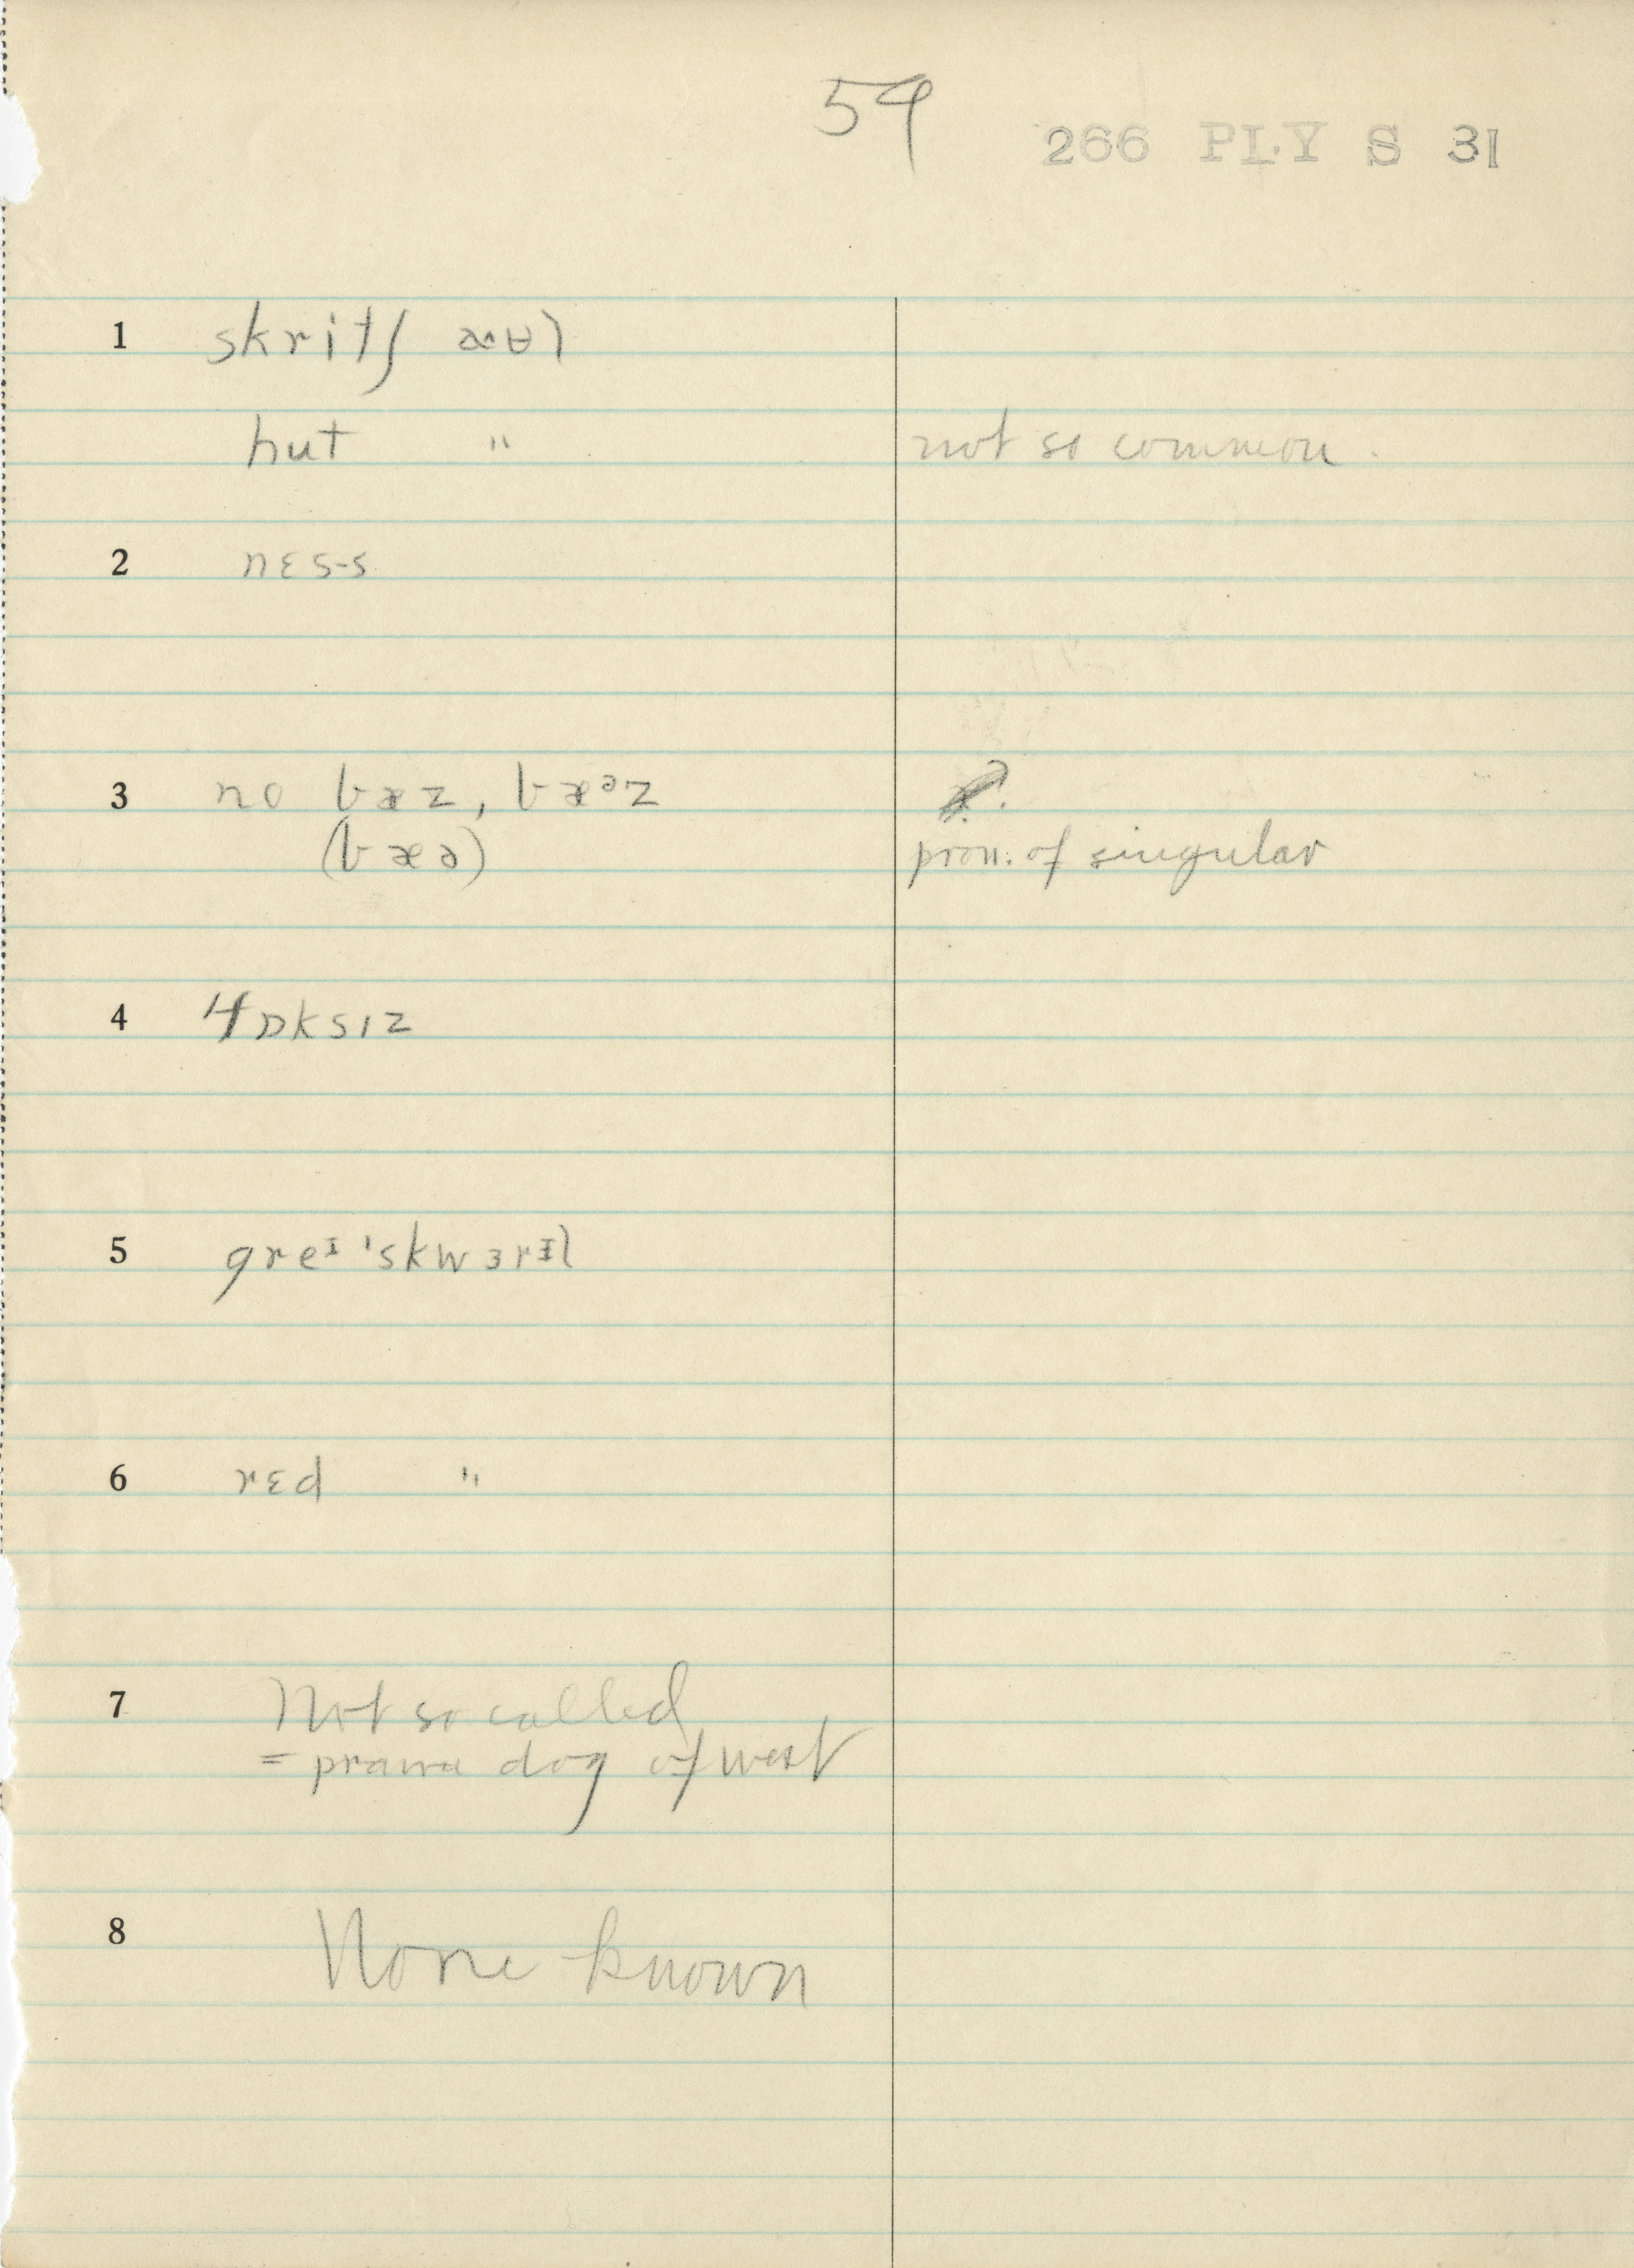 59
266 PLY S 31
1 skritʃ æʉl
hut " not so common.
2 nɛs-s
3 no bæz, bæᵊz
(bæə) pron: of singular
4 fɒksɪz
5 greᴵ 'skwɜrɪl
6 rɛd "
7 Not so called
= prairie dog of west
8 None known